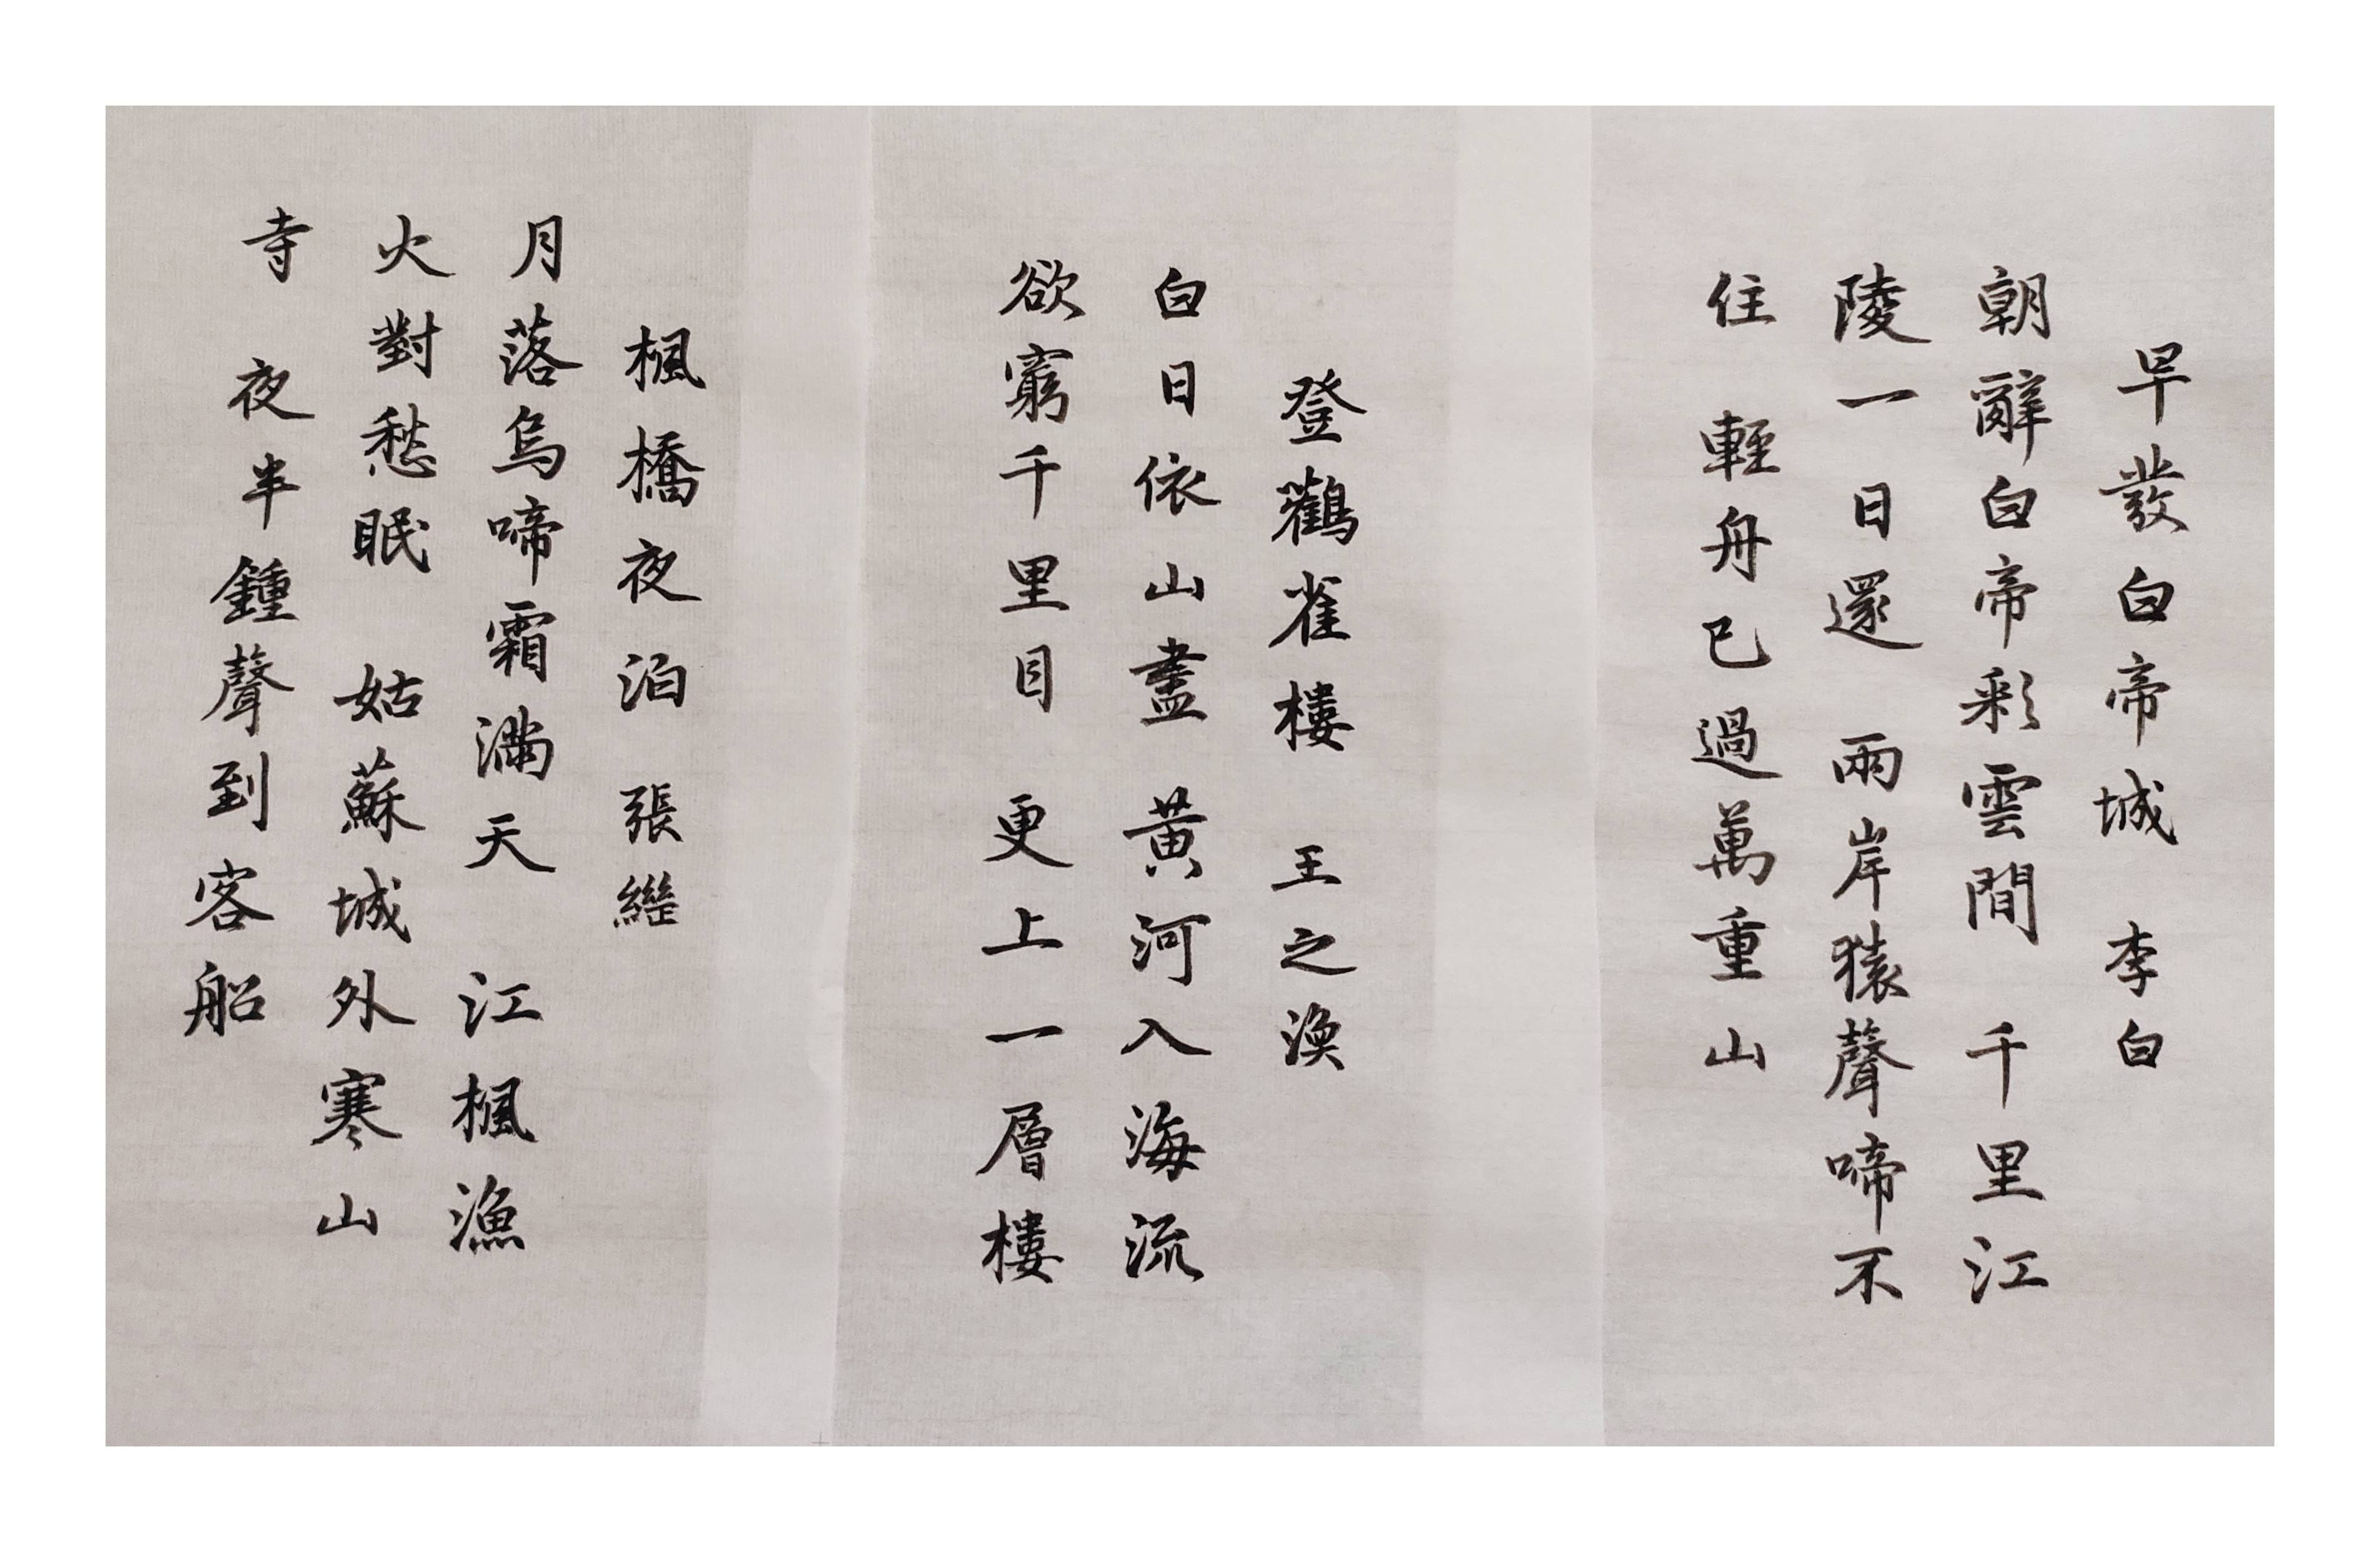 早發白帝城 李白
朝辭白帝彩雲間 千里江
陵一日還 兩岸猿聲啼不
住 輕舟已過萬重山
登鸛雀樓 王之渙
白日依山盡 黃河入海流
欲窮千里目 更上一層樓
楓橋夜泊 張繼
月落烏啼霜滿天 江楓漁
火對愁眠 姑蘇城外寒山
寺 夜半鍾聲到客船